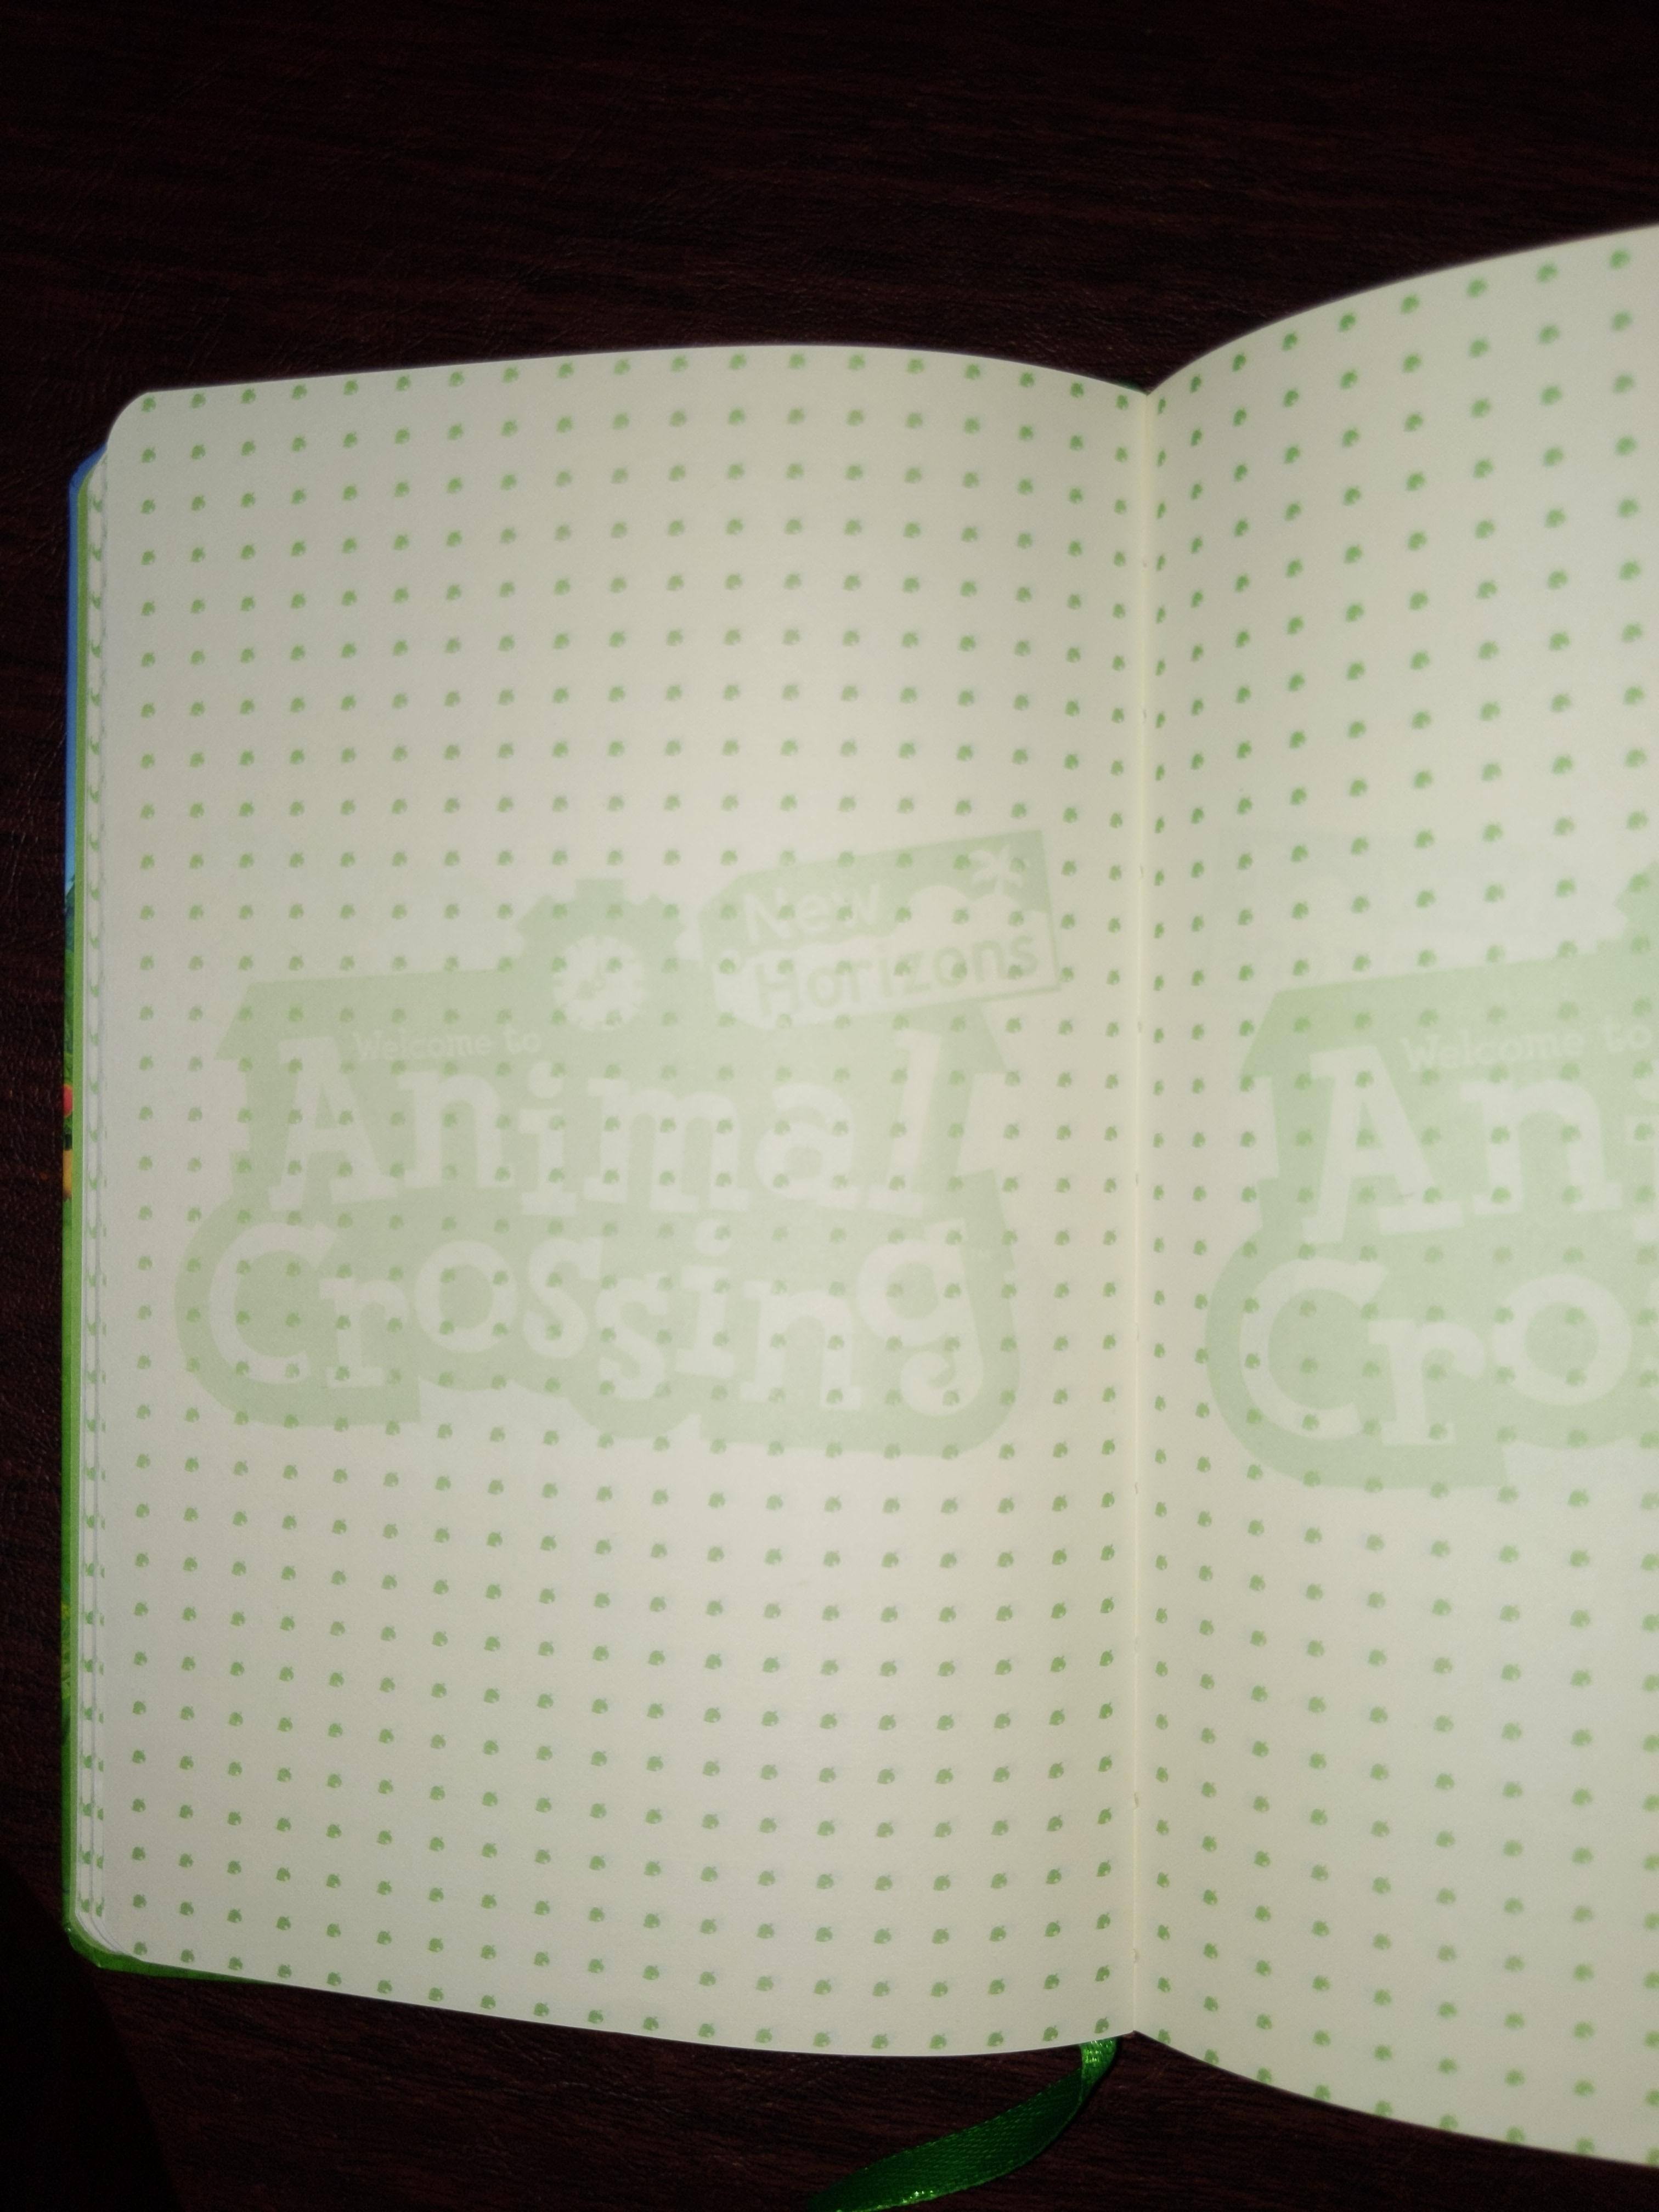 New
Horizons
Welcome to
Animal
Crossing
Welcome to
Ani
Cro